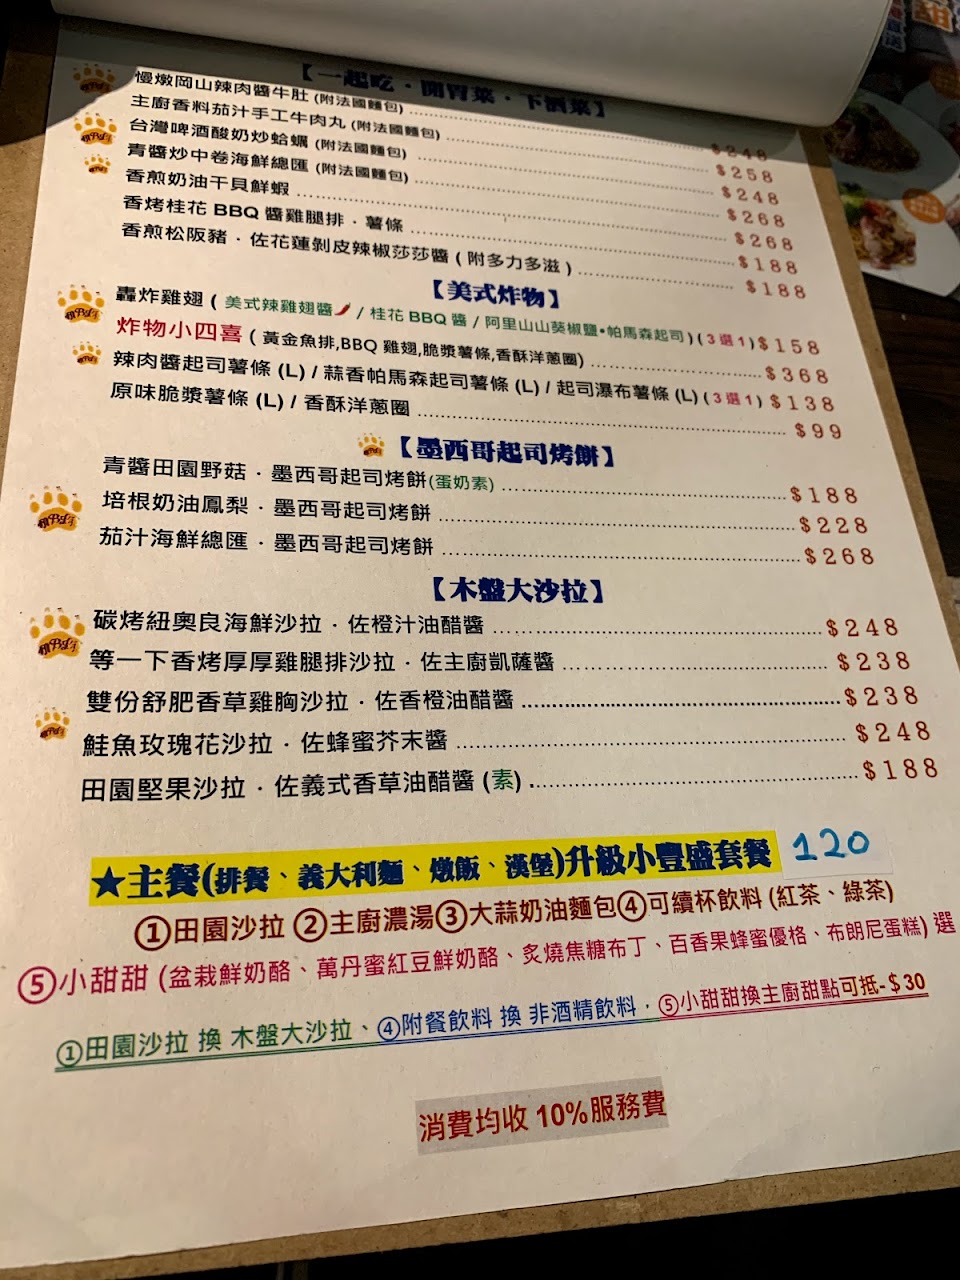 【一起吃．開胃菜．下酒菜】
慢燉岡山辣肉醬牛肚 (附法國麵包) $248
主廚香料茄汁手工牛肉丸 (附法國麵包) $258
台灣啤酒酸奶炒蛤蠣 (附法國麵包) $248
青醬炒中卷海鮮總匯 (附法國麵包) $268
香煎奶油干貝鮮蝦 $268
香烤桂花BBQ醬雞腿排．薯條 $188
香煎松阪豬．佐花蓮剝皮辣椒莎莎醬 ( 附多力多滋 ) $188
【美式炸物】
轟炸雞翅 ( 美式辣雞翅醬🌶 / 桂花BBQ醬 / 阿里山山葵椒鹽•帕馬森起司 ) ( 3選1 ) $158
炸物小四喜 ( 黃金魚排,BBQ 雞翅,脆漿薯條,香酥洋蔥圈) $368
辣肉醬起司薯條 (L) / 蒜香帕馬森起司薯條 (L) / 起司瀑布薯條 (L) ( 3選1 ) $138
原味脆漿薯條 (L) / 香酥洋蔥圈 $99
【墨西哥起司烤餅】
青醬田園野菇．墨西哥起司烤餅(蛋奶素) $188
培根奶油鳳梨．墨西哥起司烤餅 $228
茄汁海鮮總匯．墨西哥起司烤餅 $268
【木盤大沙拉】
碳烤紐奧良海鮮沙拉．佐橙汁油醋醬 $248
等一下香烤厚厚雞腿排沙拉．佐主廚凱薩醬 $238
雙份舒肥香草雞胸沙拉．佐香橙油醋醬 $238
鮭魚玫瑰花沙拉．佐蜂蜜芥末醬 $248
田園堅果沙拉．佐義式香草油醋醬 (素) $188
★主餐(排餐、義大利麵、燉飯、漢堡)升級小豐盛套餐 120
①田園沙拉 ②主廚濃湯③大蒜奶油麵包④可續杯飲料 (紅茶、綠茶)
⑤小甜甜 (盆栽鮮奶酪、萬丹蜜紅豆鮮奶酪、炙燒焦糖布丁、百香果蜂蜜優格、布朗尼蛋糕) 選
①田園沙拉 換 木盤大沙拉、④附餐飲料 換 非酒精飲料．⑤小甜甜換主廚甜點可抵-$30
消費均收 10%服務費